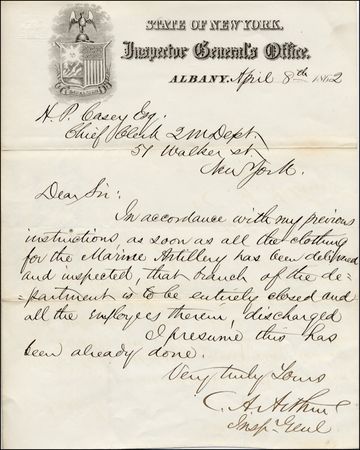 STATE OF NEW YORK.
Inspector General's Office.
ALBANY, April 8th 1862
H. P. Casey Esq.
Chief Clerk 2 M Dept,
51 Walker st,
New York.
Dear Sir:
In accordance with my previous
instructions, as soon as all the clothing
for the Marine Artillery has been delivered
and inspected, that branch of the de-
=partment is to be entirely closed and
all the employees therein, discharged
I presume this has
been already done.
Very truly Yours
C. A. Arthur
Insp. Genl